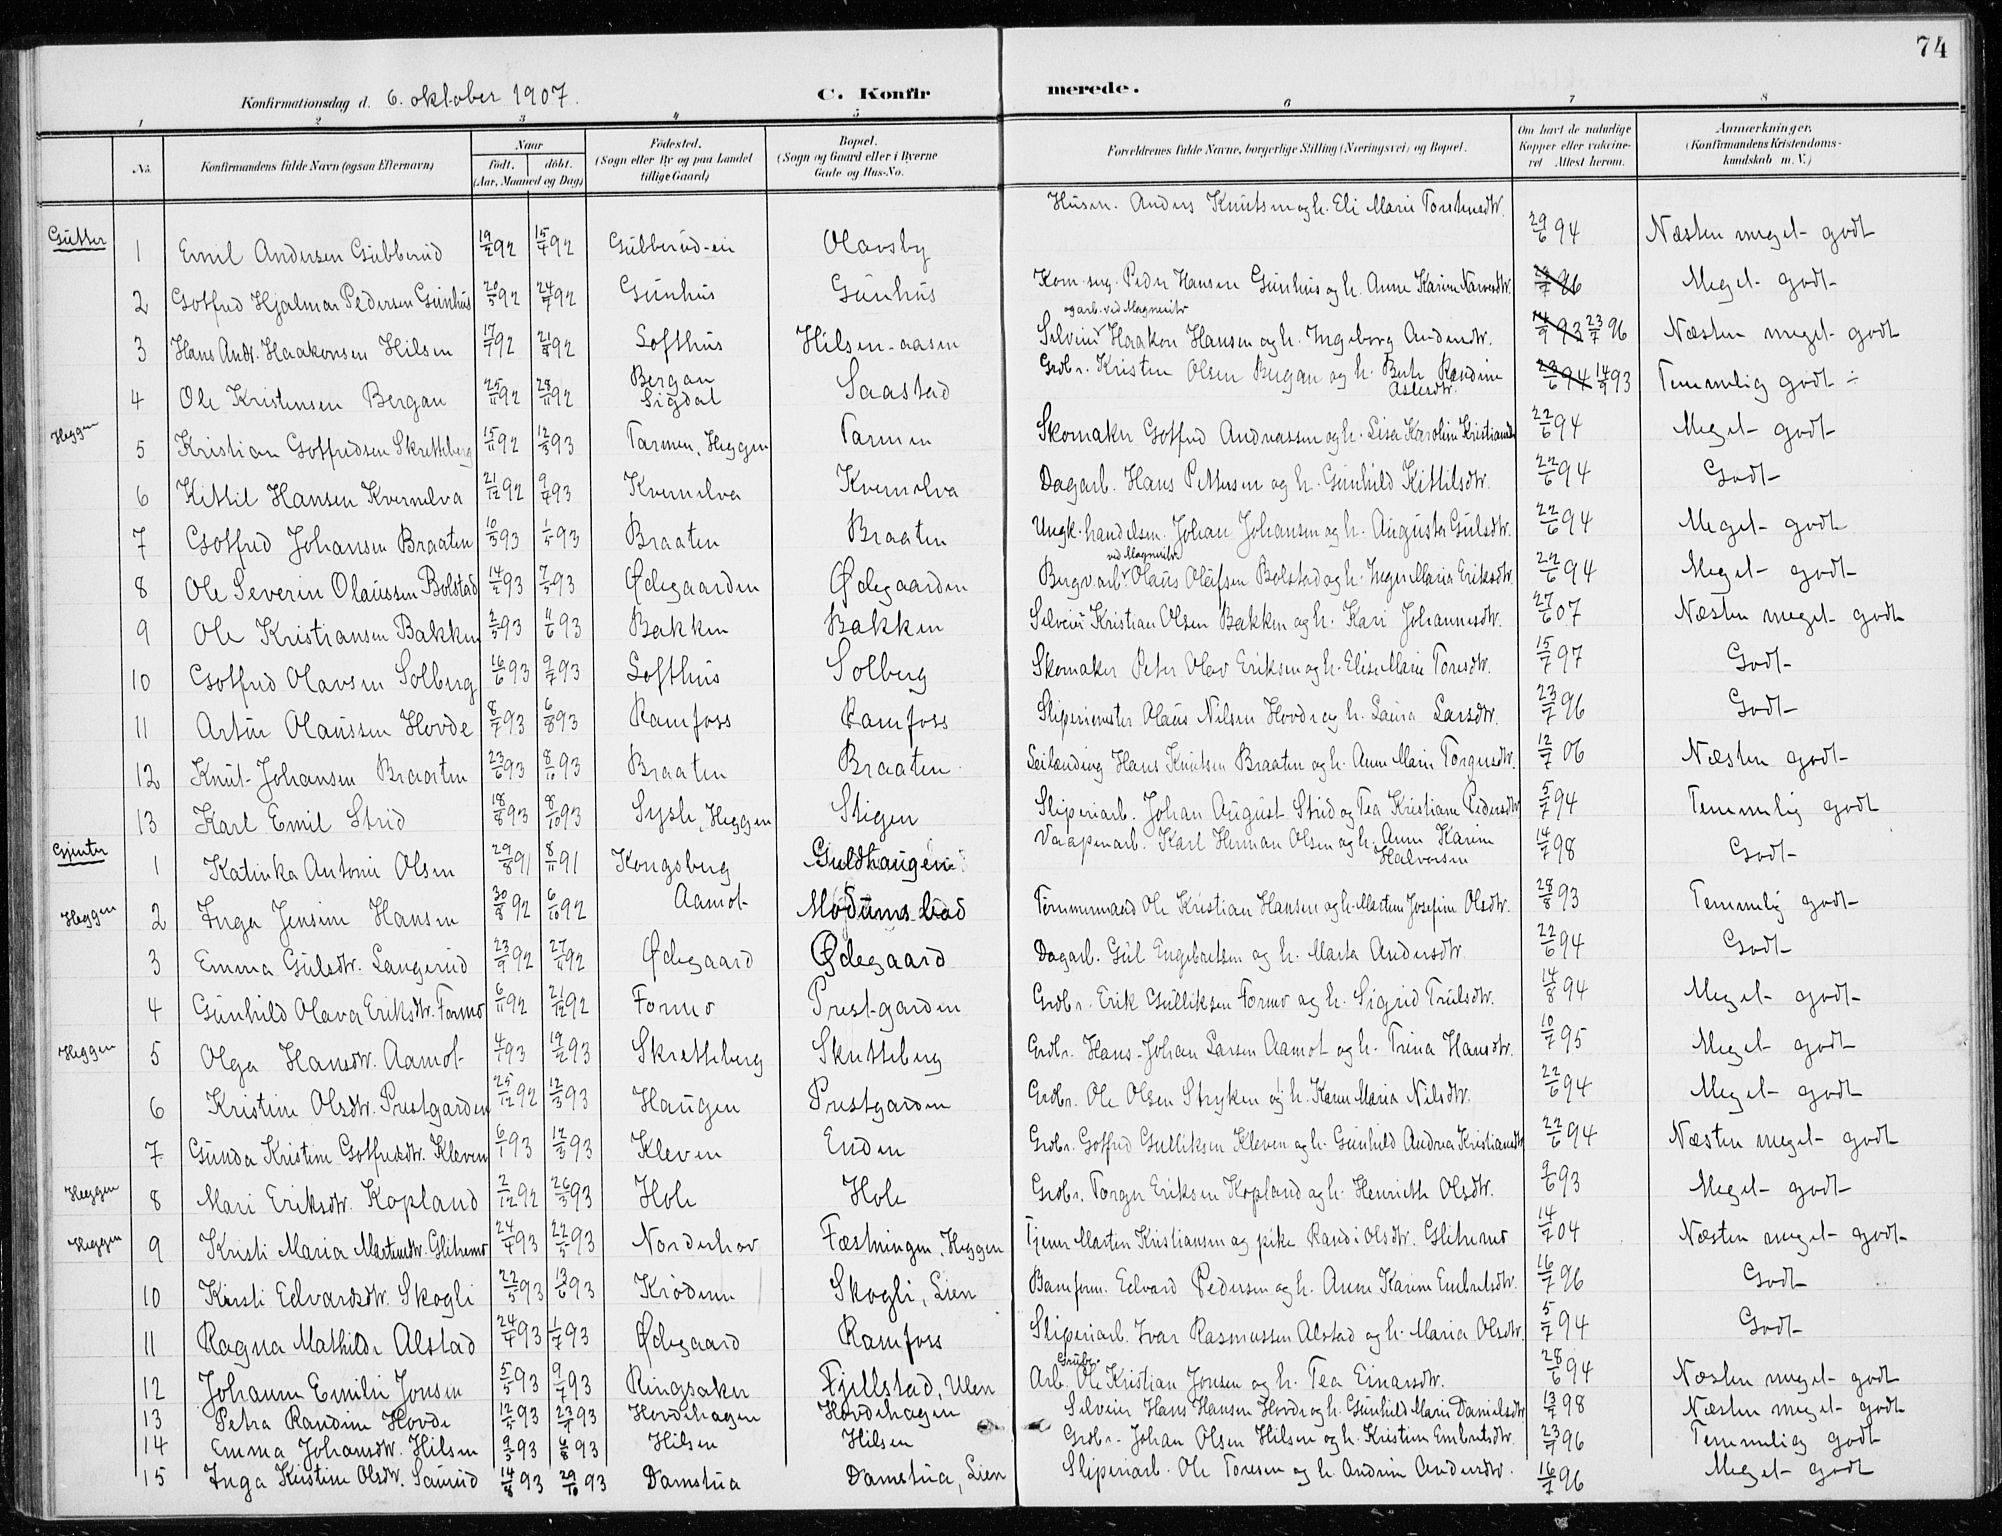 74
Konfirmationsdag d. 6. oktober 1907. C. Konfir merede.
1 2 3 4 5 6 7 8
No. Konfirmandens fulde Navn (ogsaa Efternavn) Naar født. døbt. (Aar, Maaned og Dag) Fødested. (Sogn eller By og paa Landet tillige Gaard) Bopæl. (Sogn og Gaard eller i Byerne Gade og Hus-No. Forældrenes fulde Navne, borgerlige Stilling (Næringsvei) og Bopæl. Om havt de naturlige Kopper eller vakcineret Attest herom. Anmærkninger. (Konfirmandens Kristendomskundskab m. V.)
Gutter 1 Emil Andersen Gubberud 19/2 92 15/4 92 Gubberud-eie Olavsby Husm. Anders Knutsen og h. Eli Marie Torstensdtr. 29/6 94 Næsten meget godt
2 Gotfred Hjalmar Pedersen Gunhus 20/5 92 24/7 92 Gunhus Gunhus Peder Hansen Gunhus og h. Anne Karine Meget godt
og arb. ved Magnesitv
3 Hans Andr. Haakonsen Hilsen 17/7 92 21/8 92 Softhus Hilsen-aasen Selveier Haakon Hansen og h. Ingeborg Andersdtr. 14/9 93 23/7 96 Næsten meget godt
4 Ole Kristensen Bergan 25/11 92 28/11 92 Bergan Sigdal Saastad Grdbr. Kristen Olsen Bergan og h. 28/6 94 14/9 93 Temmelig godt ÷
Heggen 5 Kristian Gotfredsen Skretteberg 15/11 92 12/3 93 Tarmen, Heggen Tarmen Skomaker Gotfred Andreassen og h. Lisa Karoline Kristiansd 22/6 94 Meget godt
6 Kittil Hansen Kvernelva 21/12 92 9/4 93 Kvernelva Kvernelva Dagarb. Hans Pettersen og h. Gunhild Kittilsdtr. 22/6 94 Godt
7 Gotfred Johansen Braaten 10/3 93 1/5 93 Braaten Braaten Johan Johansen og h. Augusta Gulsdtr. 22/6 94 Meget godt
ved Magnesitv
8 Ole Severin Olaussen Bolstad 14/2 93 7/5 93 Ødegaarden Ødegaarden Bergv.arb. Olaus Olafsen Bolstad og h. Inger Maria Eriksdtr. 22/6 94 Meget godt
9 Ole Kristiansen Bakken 2/5 93 11/6 93 Bakken Bakken Selveier Kristian Olsen Bakken og h. Kari Johannesdtr. 27/6 07 Næsten meget godt
10 Gotfred Olavsen Solberg 16/6 93 9/7 93 Softhus Solberg Skomaker Peter Olav Eriksen og h. Elise Marie Toresdtr. 15/7 97 Godt
11 Artur Olaussen Hovde 8/7 93 6/8 93 Ramfoss Ramfoss Sliperiemester Olaus Nilsen Hovde og h. Laura Larsdtr. 23/7 96 Godt
12 Knut Johansen Braaten 23/6 93 8/10 93 Braaten Braaten Hans Knutsen Braaten og h. Anne Marie Torgersdtr. 12/7 06 Næsten godt
13 Karl Emil Strid 18/8 93 8/10 93 Sysle, Heggen Stigen Sliperiarb. Johan August Strid og Tea Kristiane Pedersdtr 5/7 94 Temmelig godt
Gjenter 1 Katinka Antonie Olsen 29/8 91 8/11 91 Kongsberg Guldhaugen Vaapenarb. Karl Herman Olsen og h. Anne Karine Halvorsen 14/7 98 Godt
Heggen 2 Inga Jensine Hansen 30/8 92 6/10 92 Aamot Modums bad Tømmermand Ole Kristian Hansen og h. Marten Josefine Olsdtr. 28/8 93 Temmelig godt
3 Emma Gulsdtr. Langerud 23/9 92 27/11 92 Ødegaard Ødegaard Dagarb. Gul Engebretsen og h. Marta Andersdtr. 22/6 94 Godt
4 Gunhild Olava Eriksdtr. Formo 6/11 92 21/12 92 Formo Prestgarden Grdbr. Erik Gulliksen Formo og h. Sigrid Trulsdtr. 14/8 94 Meget godt
Heggen 5 Olga Hansdtr. Aamot 4/1 93 19/2 93 Skretteberg Skretteberg Grdbr. Hans Johan Larsen Aamot og h. Trina Hansdtr. 10/7 95 Meget godt
6 Kristine Olsdtr. Prestgarden 25/12 92 12/3 93 Haugen Prestgarden Grdbr. Ole Olsen Stryken og h. Karen Maria Nilsdtr. 22/6 94 Meget godt
7 Gunda Kristine Gotfredsdtr. Kleven 6/1 93 12/3 93 Kleven Enden Grdbr. Gotfred Gulliksen Kleven og h. Gunhild Andrea Kristiansdtr 22/6 94 Næsten meget godt
Heggen 8 Mari Eriksdtr. Kopland 2/12 92 26/3 93 Hole Hole Grdbr. Torger Eriksen Kopland og h. Henriette Olsdtr. 9/6 93 Meget godt
Heggen 9 Kristi Maria Martensdtr. Glitremo 24/4 93 22/5 93 Norderhov Fæstningen, Heggen Tjener Marten Kristiansen og pike Randi Olsdtr. Glitremo 14/7 04 Næsten meget godt
10 Kirsti Edvardsdtr. Skogli 22/5 93 13/6 93 Krødern Skogli, Lien Banform. Edvard Pedersen og h. Anne Karine Embretsdtr. 16/7 96 Godt
11 Ragna Mathilde Alstad 24/4 93 1/7 93 Ødegaard Ramfoss Sliperiarb. Ivar Rasmussen Alstad og h. Maria Olsdtr. 5/7 94 Godt
12 Johanne Emilie Jonsen 5/5 93 9/7 93 Ringsaker Fjellstad, Ulen Grube Arb. Ole Kristian Jonsen og h. Tea Einarsdtr. 28/6 94 Næsten meget godt
13 Petra Randine Hovde 12/5 93 23/7 93 Hovdehagen Hovdehagen Selveier Hans Hansen Hovde og h. Gunhild Marie Danielsdtr 13/7 98 Næsten meget godt
14 Emma Johansdtr. Hilsen 9/5 93 6/8 93 Hilsen Hilsen Grdbr. Johan Olsen Hilsen og h. Kristine Embretsdtr. 23/7 96 Temmelig godt
15 Inga Kirstine Olsdtr. Saurud 14/8 93 29/10 93 Damstua Damstua, Lien Sliperiarb. Ole Toresen og h. Andrine Andersdtr. 16/7 96 Meget godt